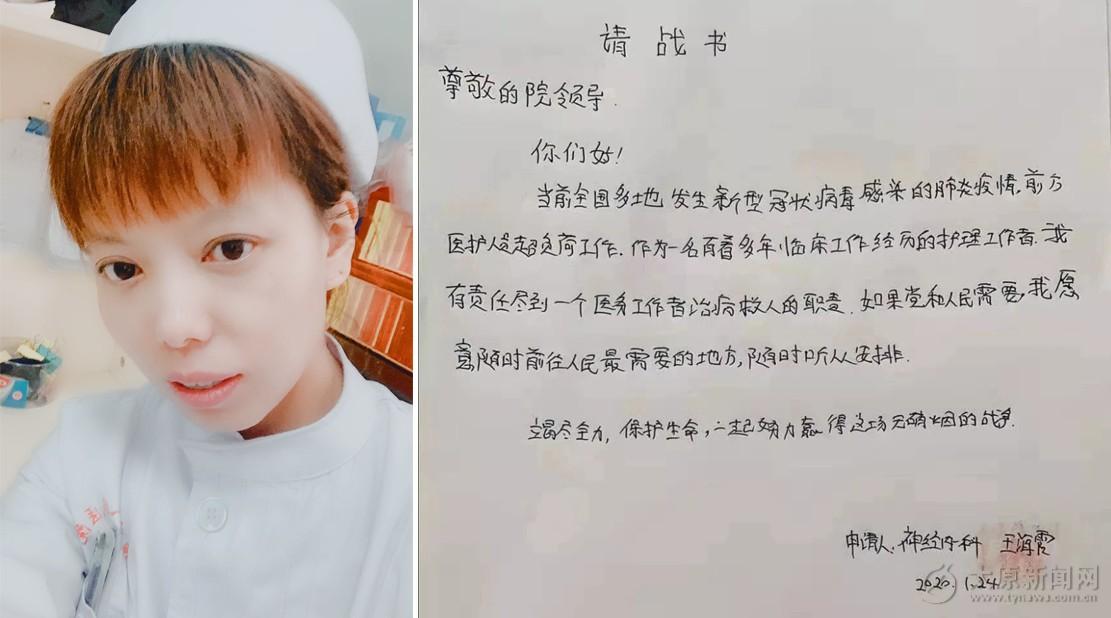 请战书
尊敬的院领导.
你们好!
当前全国多地发生新型冠状病毒感染的肺炎疫情.前方
医护人员超负荷工作.作为一名有着多年临床工作经历的护理工作者.我
有责任尽到一个医务工作者治病救人的职责.如果党和人民需要我愿
意随时前往人民最需要的地方,随时听从安排.
竭尽全力,保护生命,一起努力赢得这场无硝烟的战争.
申请人:神经内科 王海霞
2020.1.24
太原新闻网
www.tynews.com.cn